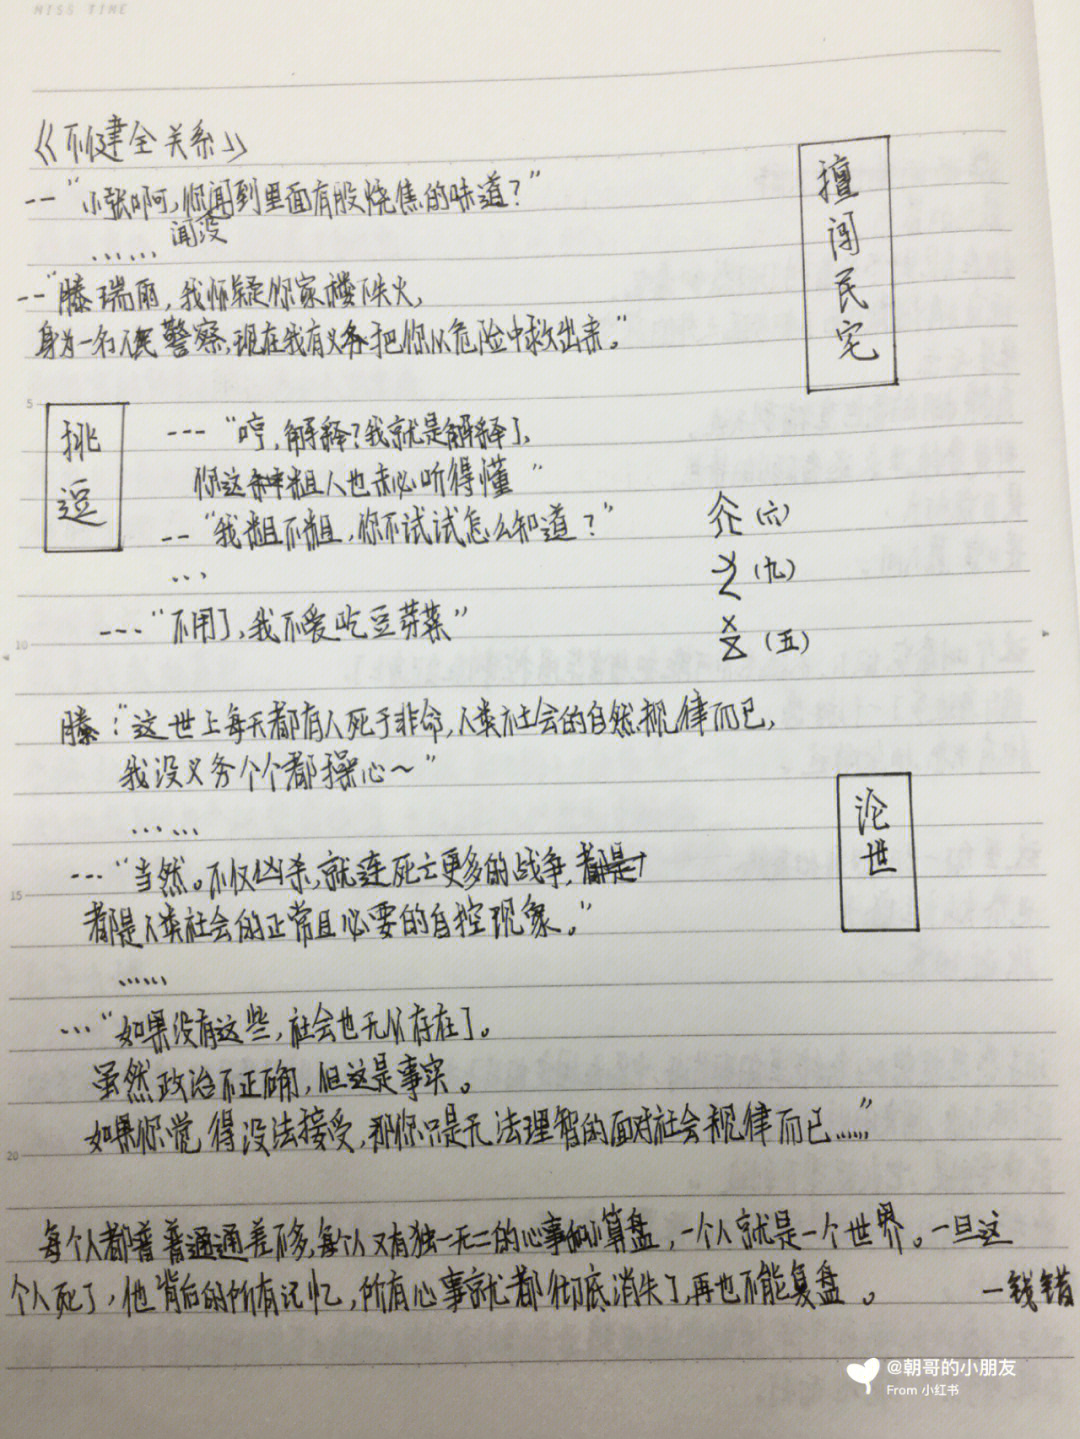 MISS TIME
《不健全关系》
--"小张啊,你闻到里面有股烧焦的味道?"
闻没
......
--"滕瑞雨,我怀疑你家楼下失火,
身为一名人民警察,现在我有义务把你从危险中救出来。"
擅闯民宅
5
挑逗
---"哼,解释?我就是解释了,
你这种粗人也未必听得懂"
--"我粗不粗,你不试试怎么知道?"
(六)
...
(九)
---"不用了,我不爱吃豆芽菜"
10
(五)
滕:"这世上每天都有人死于非命,人类社会的自然规律而已,
我没义务个个都操心~"
......
论世
---"当然。不仅凶杀,就连死亡更多的战争,都是
15
都是人类社会的正常且必要的自控现象。"
......
..."如果没有这些,社会也无从存在了。
虽然政治不正确,但这是事实。
如果你觉得没法接受,那你只是无法理智的面对社会规律而已......"
20
每个人都普普通通差不多,每个人又有独一无二的心事和小算盘,一个人就是一个世界。一旦这
个人死了,他背后的所有记忆,所有心事就都彻底消失了,再也不能复盘。 —钱错
@朝哥的小朋友
From 小红书